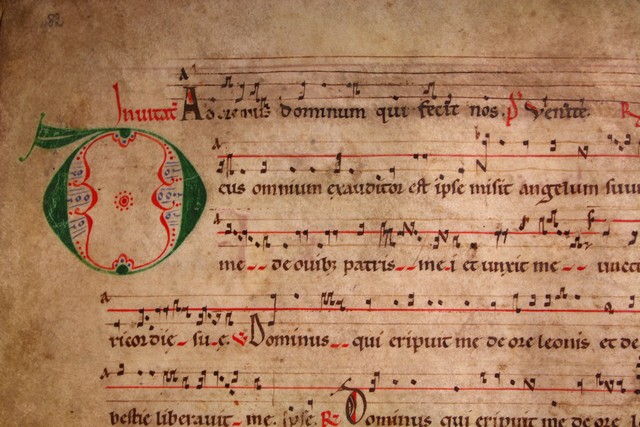 82
Invitat Adoremus dominum qui fecit nos. ps Venite. R
Deus omnium exauditor est ipse misit angelum suu
me-- de ouib; patris-- me-i et unxit me--
ricordie- su-e. V Dominus-- qui eripuit me de ore leonis et de
bestie liberauit- me. ipse. R Dominus qui eripuit me de ore